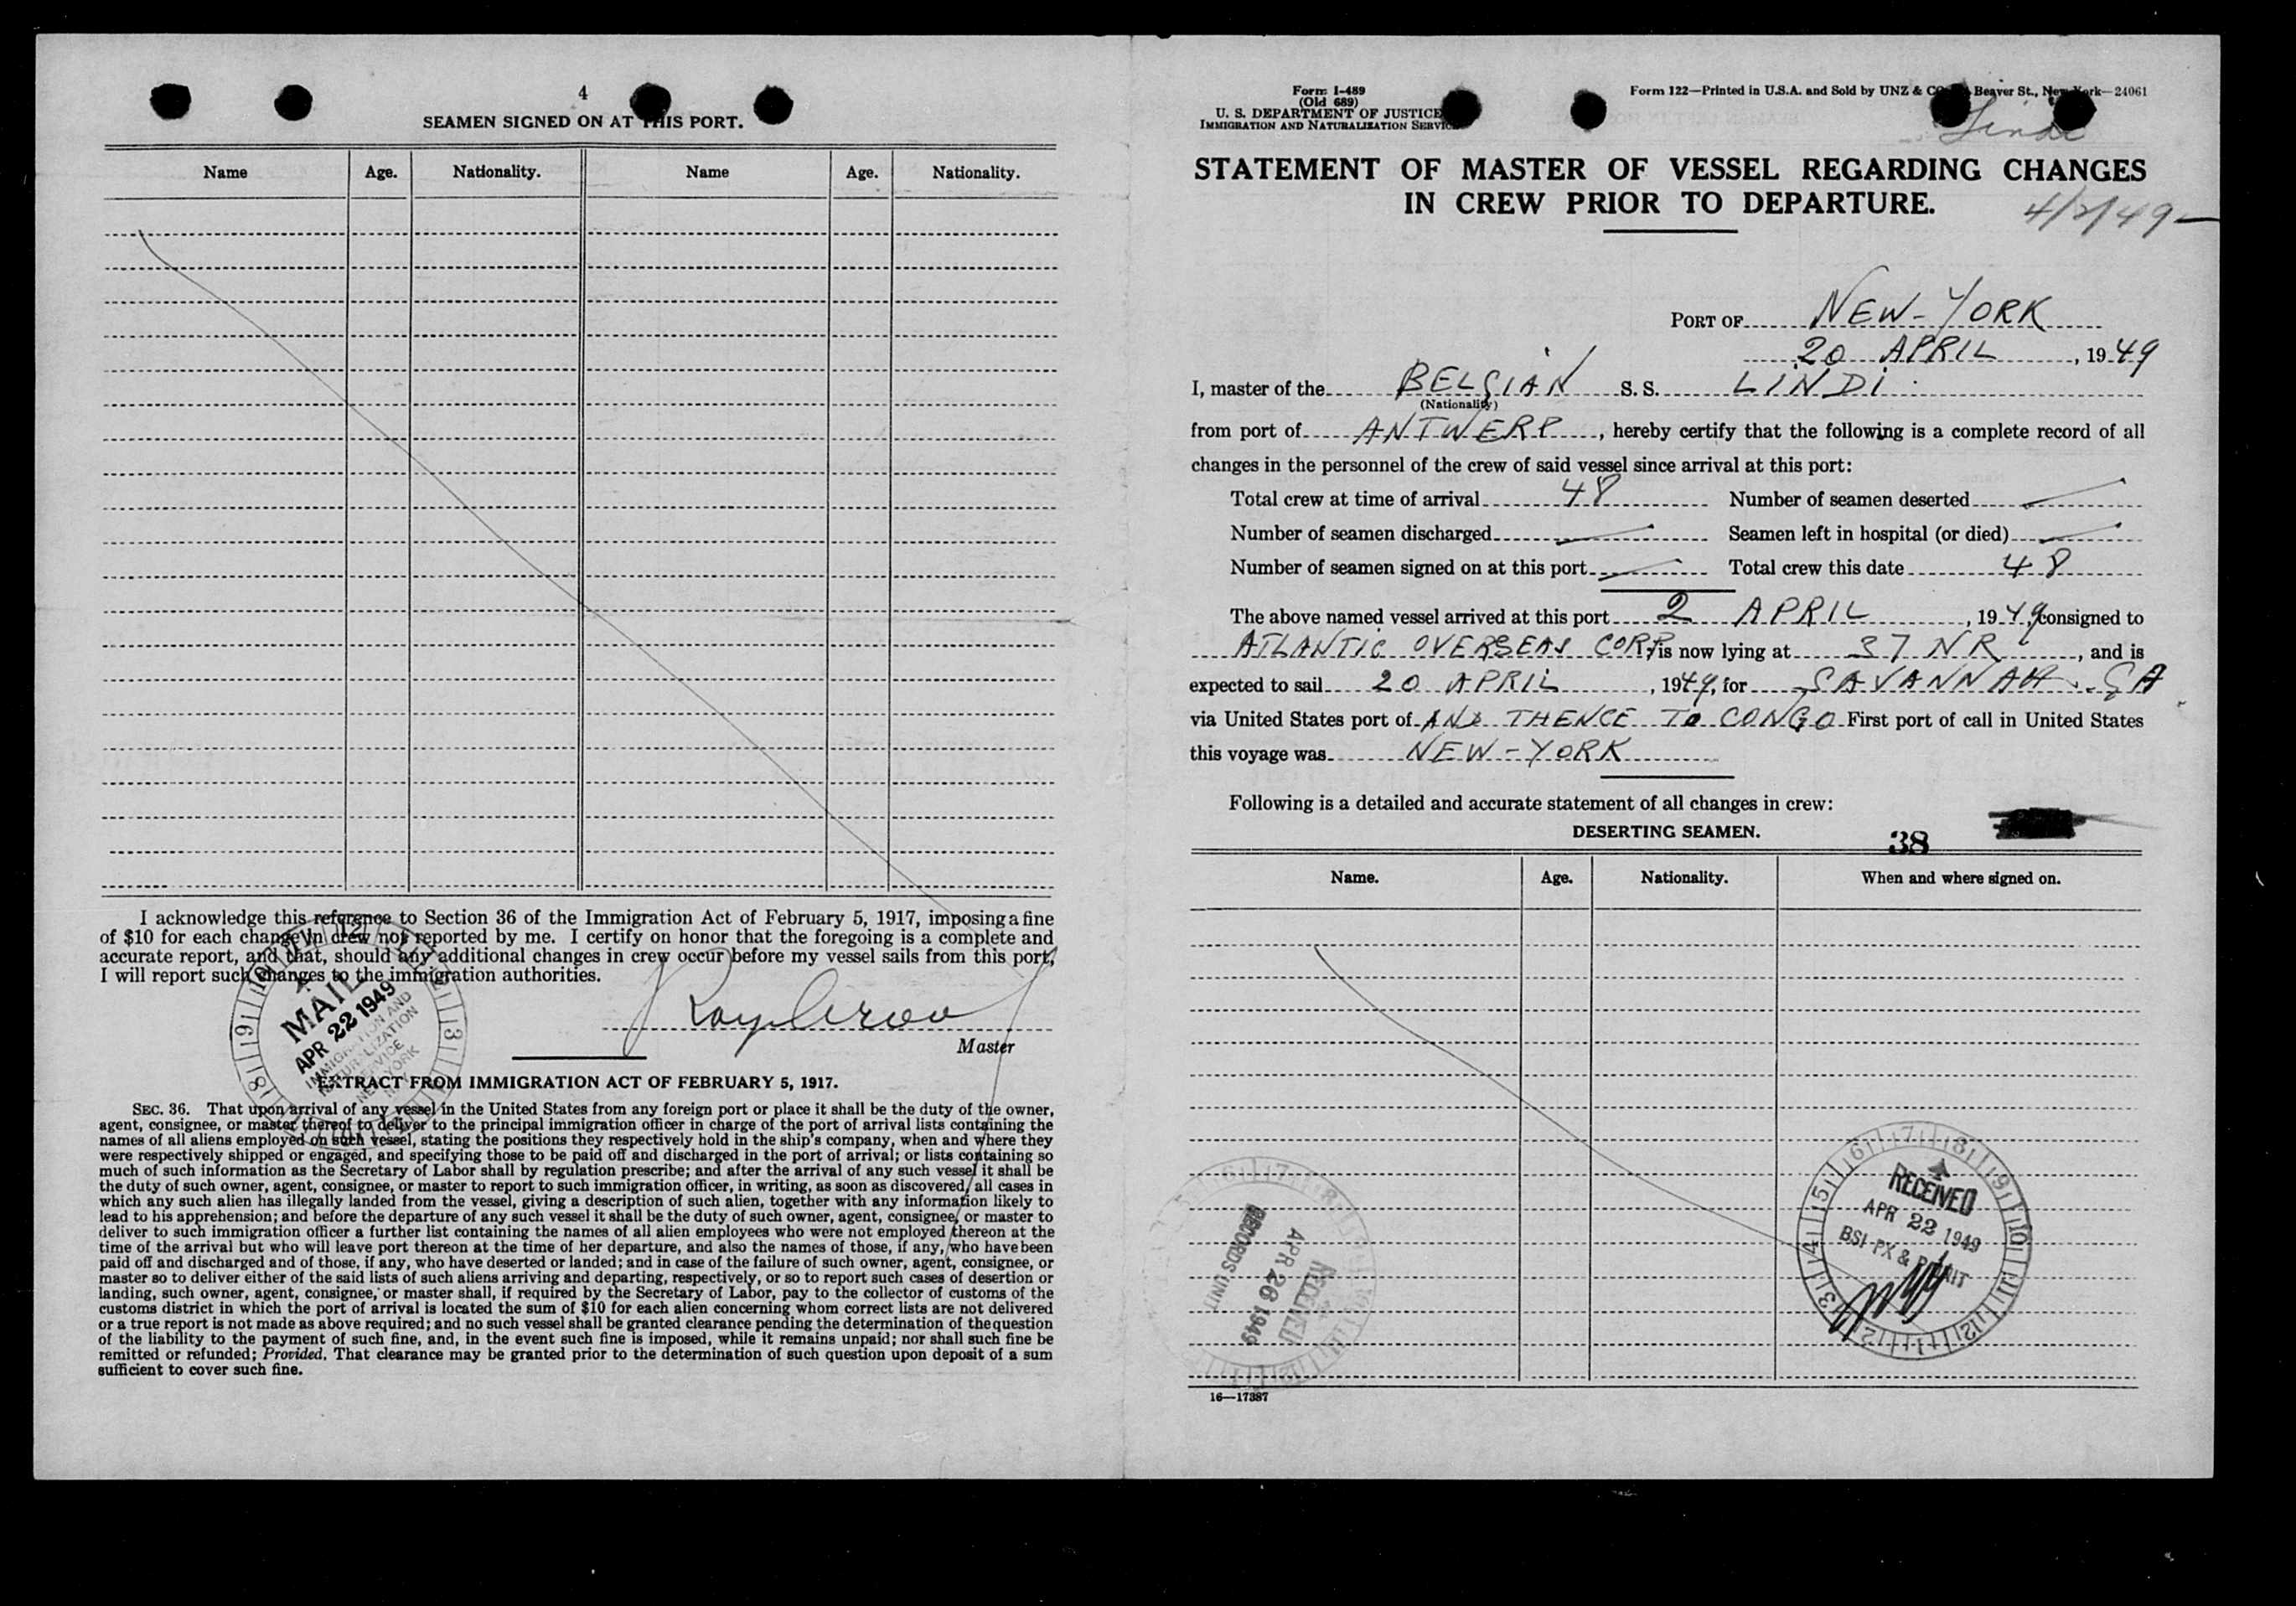 4
SEAMEN SIGNED ON AT THIS PORT.
Name Age. Nationality. Name Age. Nationality.
I acknowledge this reference to Section 36 of the Immigration Act of February 5, 1917, imposing a fine
of $10 for each change in crew not reported by me. I certify on honor that the foregoing is a complete and
accurate report, and that, should any additional changes in crew occur before my vessel sails from this port,
I will report such changes to the immigration authorities.
Master
MAIL
APR 22 1949
IMMIGRATION AND
NATURALIZATION
SERVICE
NEW YORK
N.Y.
EXTRACT FROM IMMIGRATION ACT OF FEBRUARY 5, 1917.
SEC. 36. That upon arrival of any vessel in the United States from any foreign port or place it shall be the duty of the owner,
agent, consignee, or master thereof to deliver to the principal immigration officer in charge of the port of arrival lists containing the
names of all aliens employed on such vessel, stating the positions they respectively hold in the ship's company, when and where they
were respectively shipped or engaged, and specifying those to be paid off and discharged in the port of arrival; or lists containing so
much of such information as the Secretary of Labor shall by regulation prescribe; and after the arrival of any such vessel it shall be
the duty of such owner, agent, consignee, or master to report to such immigration officer, in writing, as soon as discovered, all cases in
which any such alien has illegally landed from the vessel, giving a description of such alien, together with any information likely to
lead to his apprehension; and before the departure of any such vessel it shall be the duty of such owner, agent, consignee, or master to
deliver to such immigration officer a further list containing the names of all alien employees who were not employed thereon at the
time of the arrival but who will leave port thereon at the time of her departure, and also the names of those, if any, who have been
paid off and discharged and of those, if any, who have deserted or landed; and in case of the failure of such owner, agent, consignee, or
master so to deliver either of the said lists of such aliens arriving and departing, respectively, or so to report such cases of desertion or
landing, such owner, agent, consignee, or master shall, if required by the Secretary of Labor, pay to the collector of customs of the
customs district in which the port of arrival is located the sum of $10 for each alien concerning whom correct lists are not delivered
or a true report is not made as above required; and no such vessel shall be granted clearance pending the determination of the question
of the liability to the payment of such fine, and, in the event such fine is imposed, while it remains unpaid; nor shall such fine be
remitted or refunded; Provided, That clearance may be granted prior to the determination of such question upon deposit of a sum
sufficient to cover such fine.
Form I-489
(Old 689)
U. S. DEPARTMENT OF JUSTICE
IMMIGRATION AND NATURALIZATION SERVICE
Form 122—Printed in U.S.A. and Sold by UNZ & CO. Beaver St., New York—24061
Lindi
STATEMENT OF MASTER OF VESSEL REGARDING CHANGES
IN CREW PRIOR TO DEPARTURE.
4/2/49
PORT OF NEW-YORK
20 APRIL, 1949
I, master of the BELGIAN S. S. LINDI
(Nationality)
from port of ANTWERP, hereby certify that the following is a complete record of all
changes in the personnel of the crew of said vessel since arrival at this port:
Total crew at time of arrival 48 Number of seamen deserted
Number of seamen discharged Seamen left in hospital (or died)
Number of seamen signed on at this port Total crew this date 48
The above named vessel arrived at this port 2 APRIL, 1949, consigned to
ATLANTIC OVERSEAS CORP, is now lying at 37 NR, and is
expected to sail 20 APRIL, 1949, for SAVANNAH. GA
via United States port of AND THENCE TO CONGO First port of call in United States
this voyage was NEW-YORK
Following is a detailed and accurate statement of all changes in crew:
DESERTING SEAMEN.
38
Name. Age. Nationality. When and where signed on.
RECEIVED
APR 22 1949
BSI PX & 
RECORDS UNIT
APR 26 1949
RECEIVED
16—17387